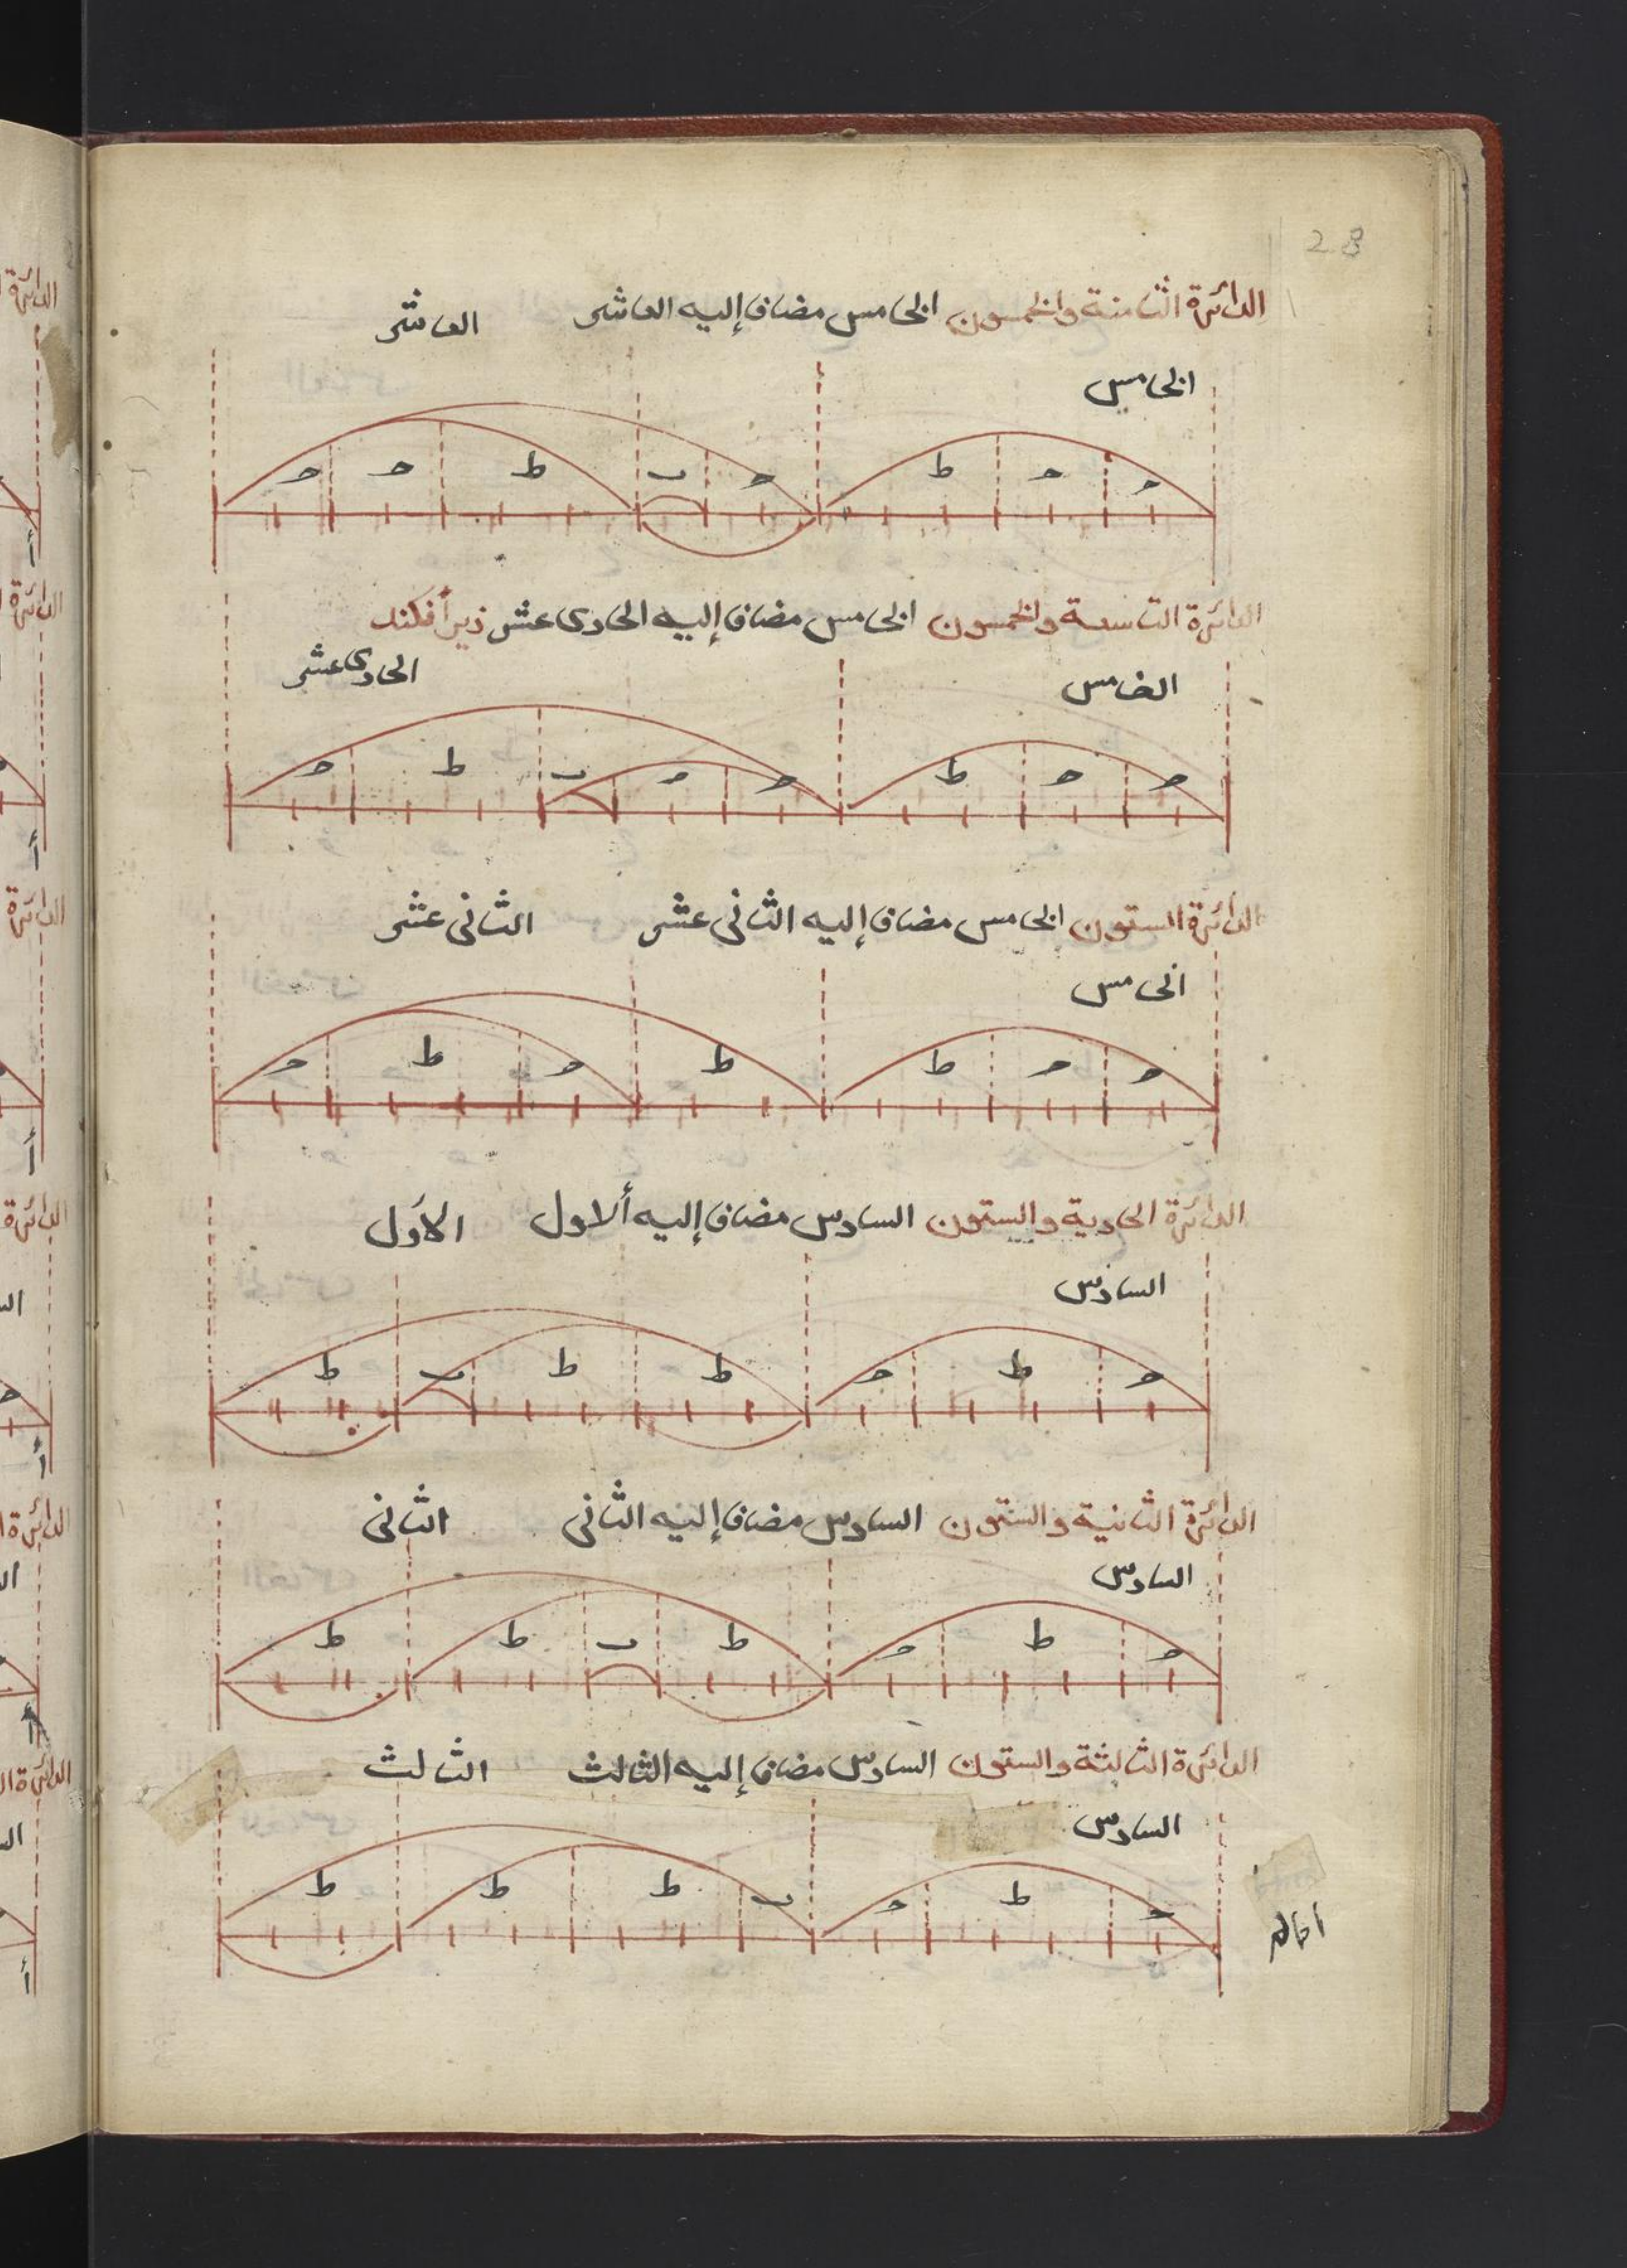 28
الدائرة الثامنة والخمسون الخامس مضاف إليه العاشر العاشر
الخامس
ط ح ح ط ب ح ح
الدائرة التاسعة والخمسون الخامس مضاف إليه الحادى عشر زيرأفكند
الحادى عشر
الخامس
ح ح ط ح ح ب ط ح
الدائرة الستون الخامس مضاف إليه الثانى عشر الثانى عشر
الخامس
ح ح ط ط ح ط ح
الدائرة الحادية والستون السادس مضاف إليه ألاول الأول
السادس
ح ط ح ط ط ب ط
الدائرة الثانية والستون السادس مضاف إليه الثانى الثانى
السادس
ح ط ح ط ب ط ط
الدائرة الثالثة والستون السادس مضاف إليه الثالث الثالث
السادس
ح ط ح ب ط ط ط